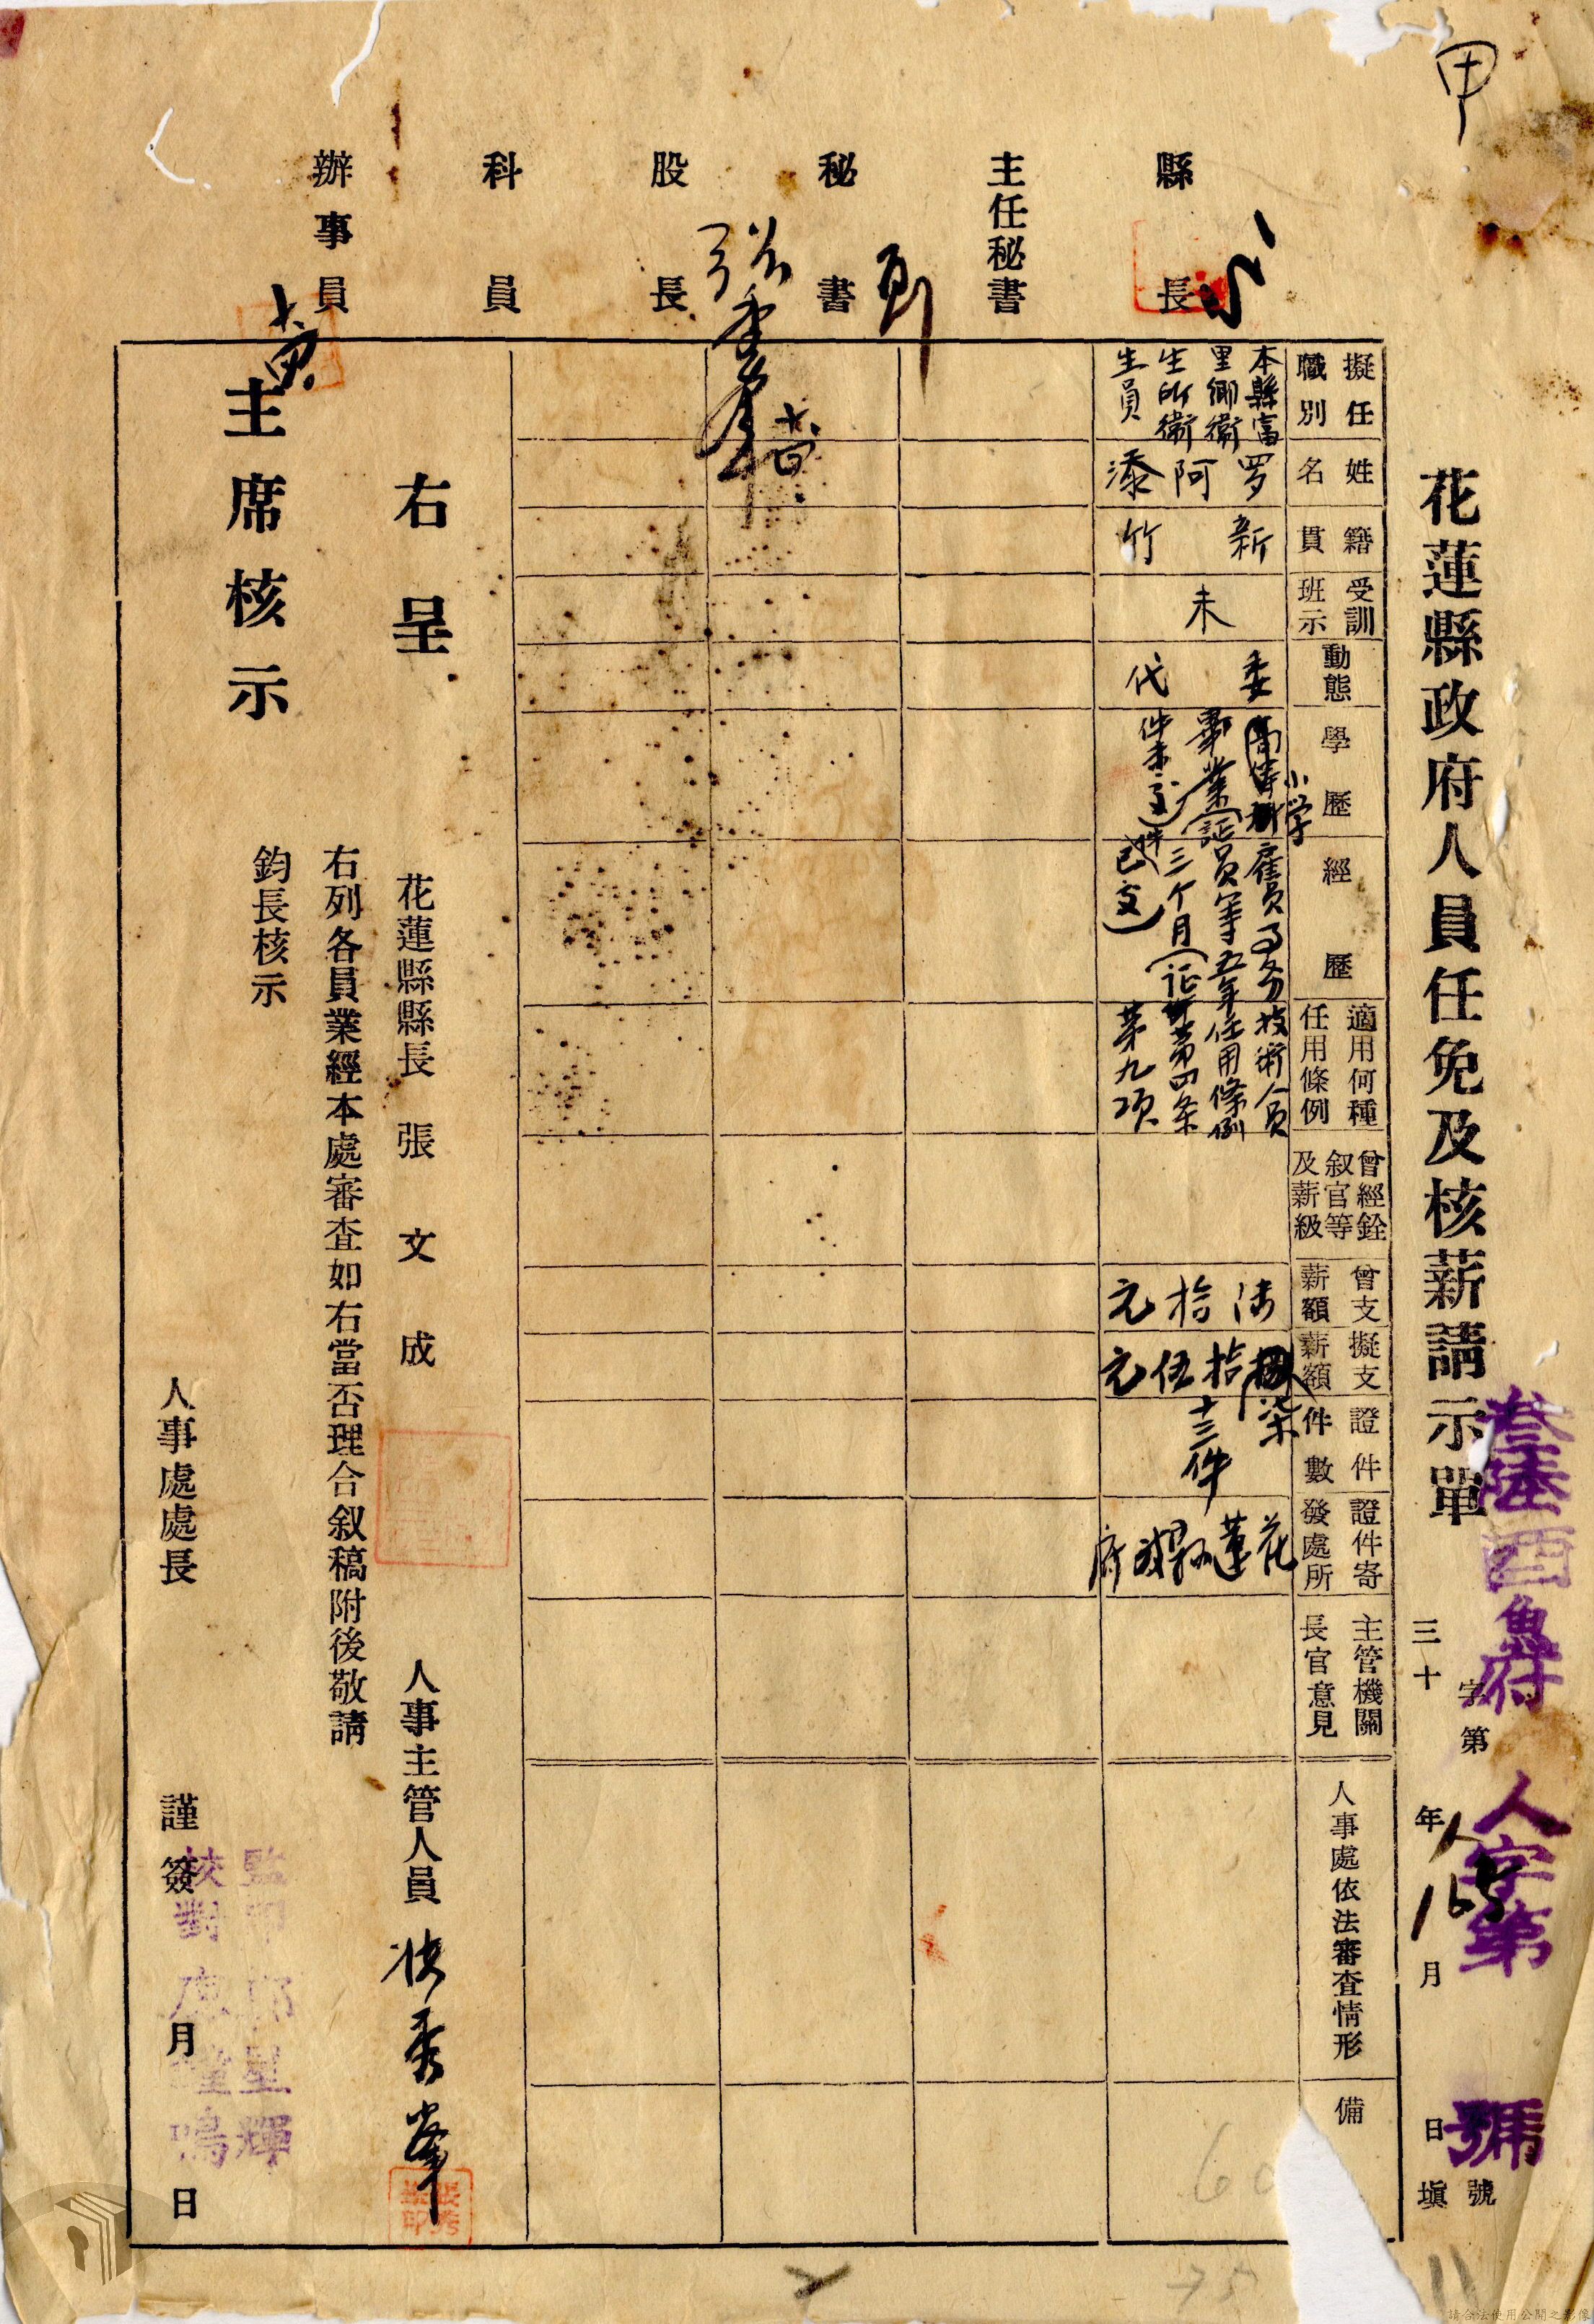 甲
花蓮縣政府人員任免及核薪請示單
叁陸酉魚府人字第號
字第 號
三十 年 月 日填
縣長
主任秘書
秘書
股長
科員
辦事員
擬任職別
本縣富里鄉衛生所衛生員
姓名
罗阿添
籍貫
新竹
受訓班示
未
動態
委代
學歷
小学
畢業(証件未交)
經歷
雇員事务員等五年三个月(証件已交)
適用何種任用條例
技術人員任用條例第四条第九項
曾經銓叙官等及薪級
曾支薪額
陆拾元
擬支薪額
柒拾伍元
證件件數
十三件
證件寄發處所
花蓮縣政府
主管機關長官意見
人事處依法審查情形
備
右呈
主席核示
花蓮縣縣長 張文成
人事主管人員 張秀峯
張秀峯印
右列各員業經本處審查如右當否理合叙稿附後敬請
鈞長核示
人事處處長 謹簽 月 日
監印
校對
請合法使用公開之影像